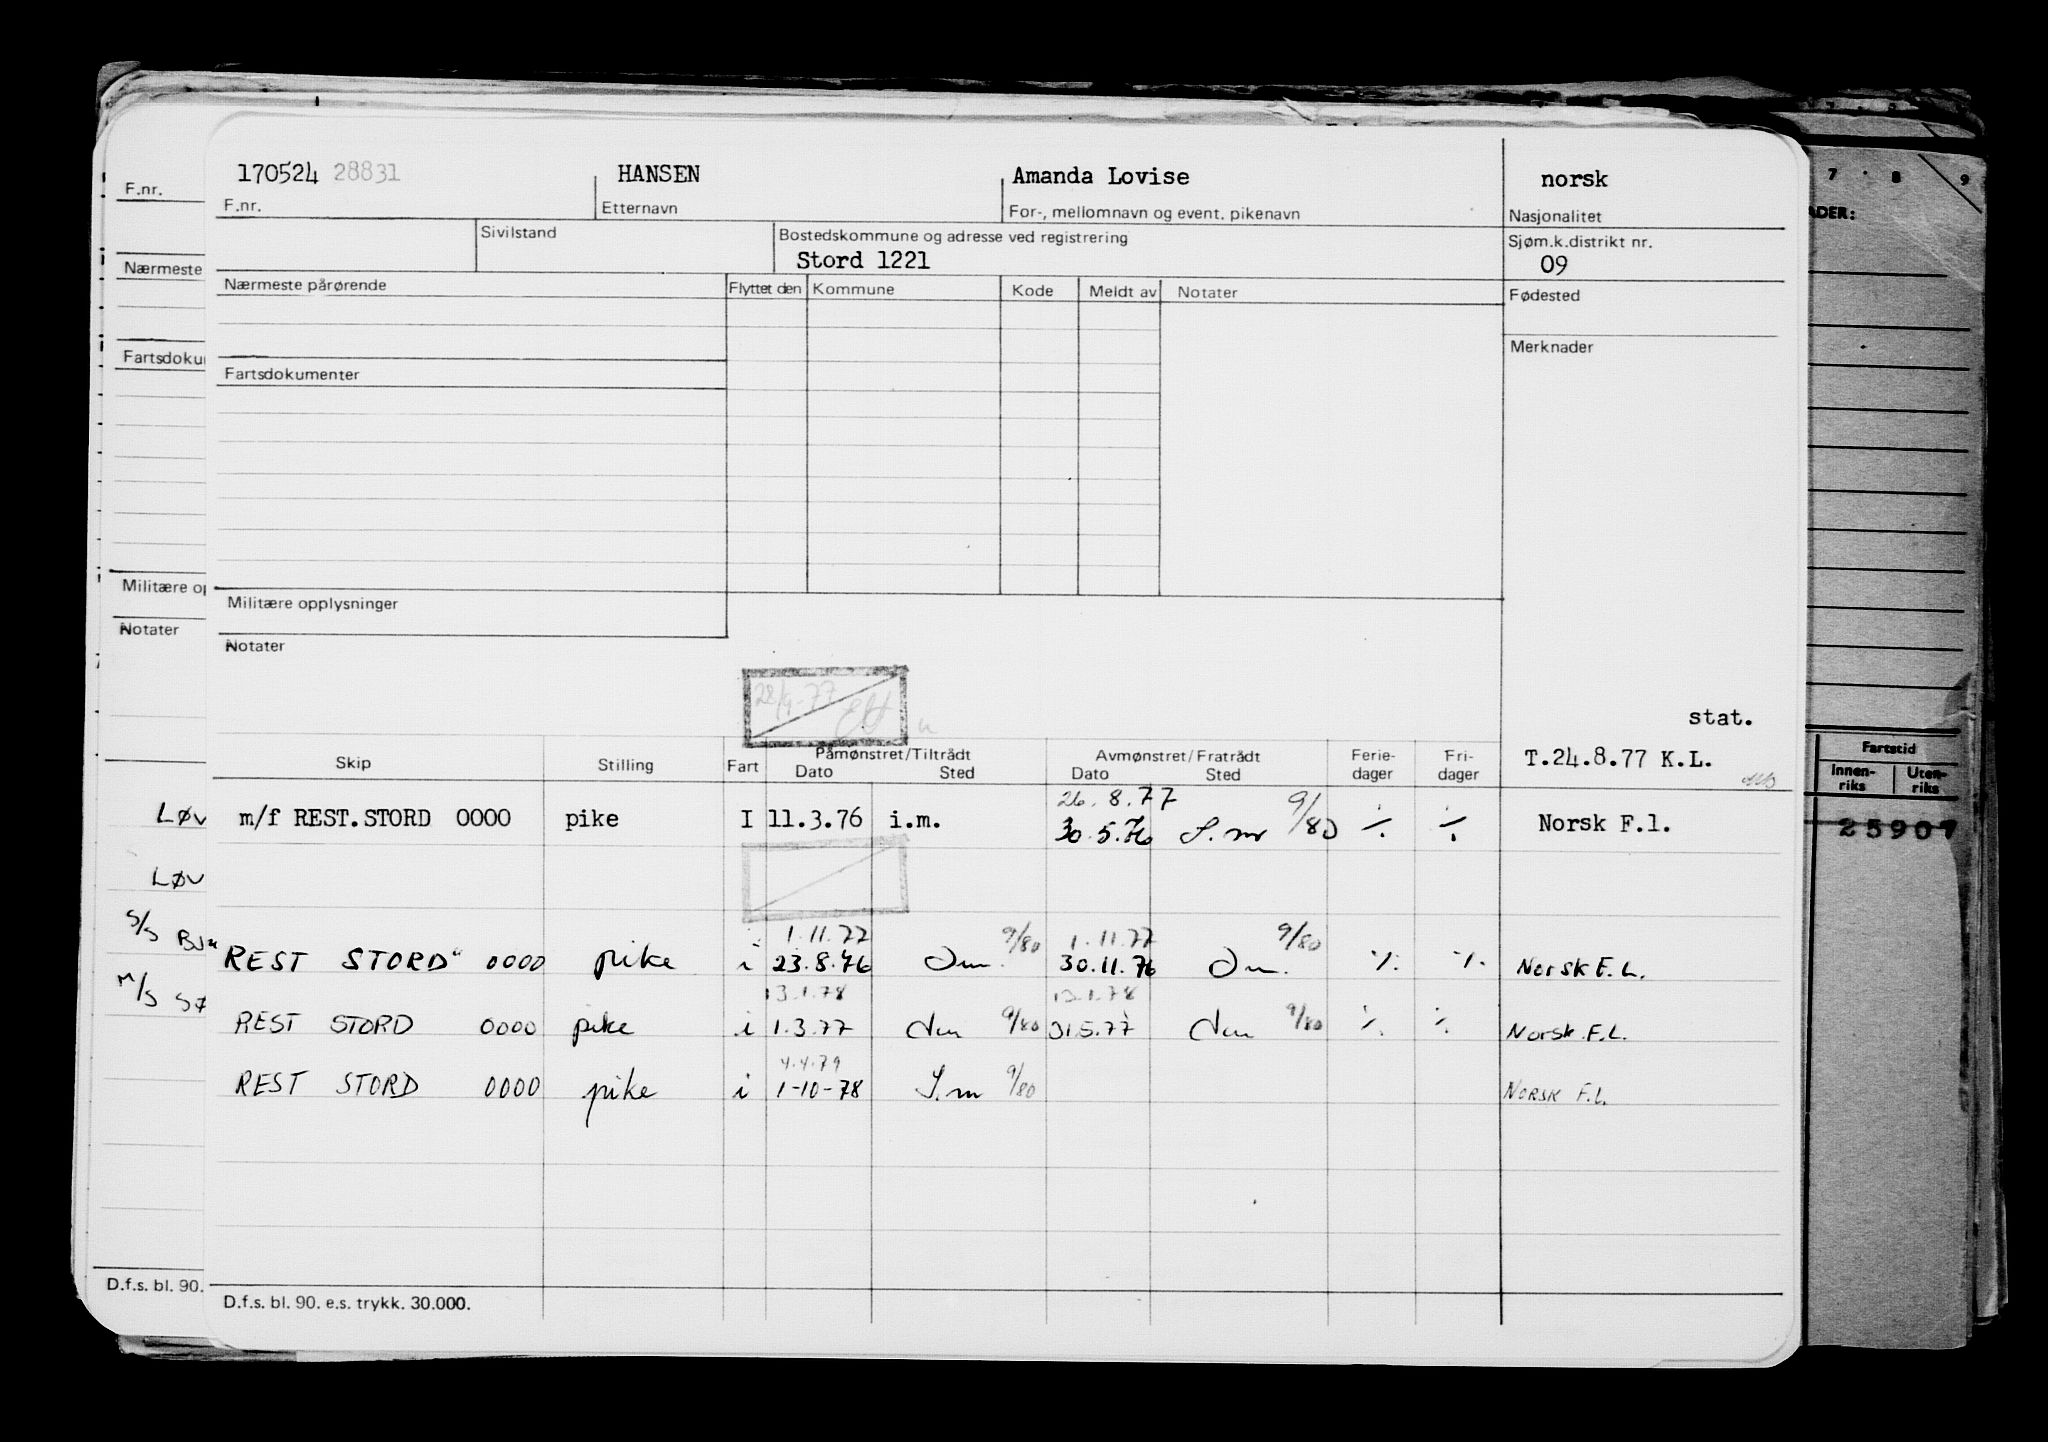 170524 28831 HANSEN Amanda Lovise norsk
F.nr. Etternavn For-, mellomnavn og event. pikenavn Nasjonalitet
Sivilstand Bostedskommune og adresse ved registrering Sjøm.k.distrikt nr.
Stord 1221 09
Nærmeste pårørende Flyttet den Kommune Kode Meldt av Notater Fødested
Merknader
Fartsdokumenter
Militære opplysninger
Notater
28/9-77
stat.
Skip Stilling Fart Påmønstret/Tiltrådt Avmønstret/Fratrådt Ferie- Fri- T.24.8.77 K.L.
Dato Sted Dato Sted dager dager
26.8.77 9/80
m/f REST.STORD 0000 pike I 11.3.76 i.m. 30.5.76 S.m ⁒ ⁒ Norsk F.l.
1.11.77 9/80 1.11.77 9/80
REST STORD" 0000 pike i 23.8.76 30.11.76 ⁒ ⁒ Norsk F.L.
13.1.78 13.1.78
REST STORD 0000 pike i 1.3.77 9/80 31.5.77 9/80 ⁒ ⁒ Norsk F.L.
4.4.79
REST STORD 0000 pike i 1-10-78 S.m 9/80 NORSK F.L.
D.f.s. bl. 90. e.s. trykk. 30.000.
F.nr.
Nærmeste
Fartsdoku
Militære op
Notater
LØV
LØV
S/S BJ
M/S SØ
D.f.s. bl. 90.
7 8 9
ADER:
Fartstid
Innen-riks Uten-riks
25907